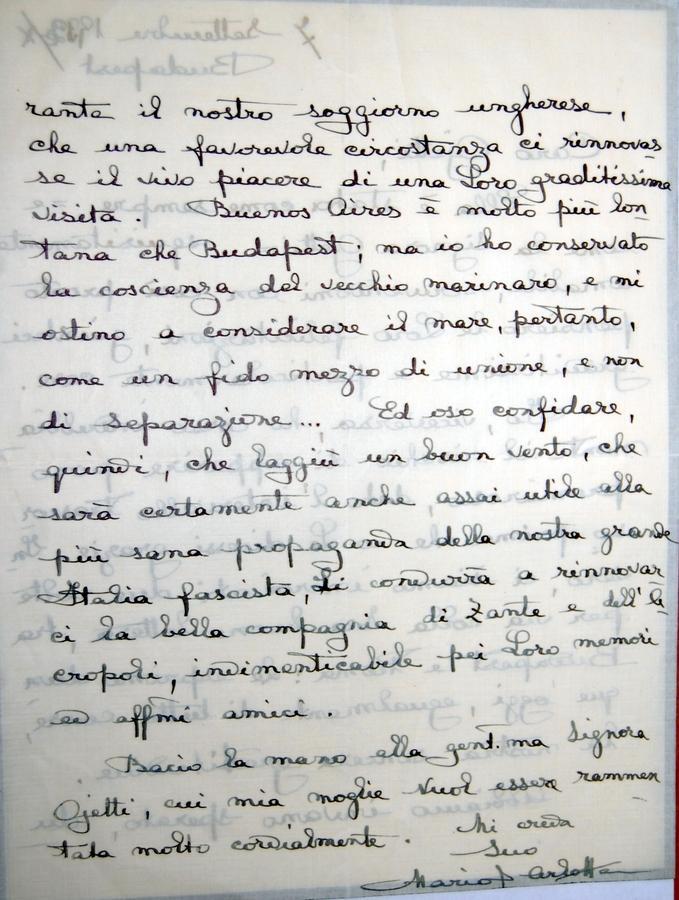 rante il nostro soggiorno ungherese,
che una favorevole circostanza ci rinnovas
se il vivo piacere di una Loro graditissima
visita. Buenos Aires è molto più lon
tana che Budapest; ma io ho conservato
la coscienza del vecchio marinaro, e mi
ostino a considerare il mare, pertanto,
come un fido mezzo di unione, e non
di separazione... Ed oso confidare,
quindi, che laggiù un buon vento, che
sarà certamente anche, assai utile alla
più sana propaganda della nostra grande
Italia fascista, Li condurrà a rinnovar
ci la bella compagnia di Zante e dell'A
cropoli, indimenticabile pei Loro memori
ed affmi amici.
Bacio la mano alla gent.ma Signora
Ojetti, cui mia moglie vuol essere rammen
tata molto cordialmente. Mi creda
Suo
Mario Arlotta